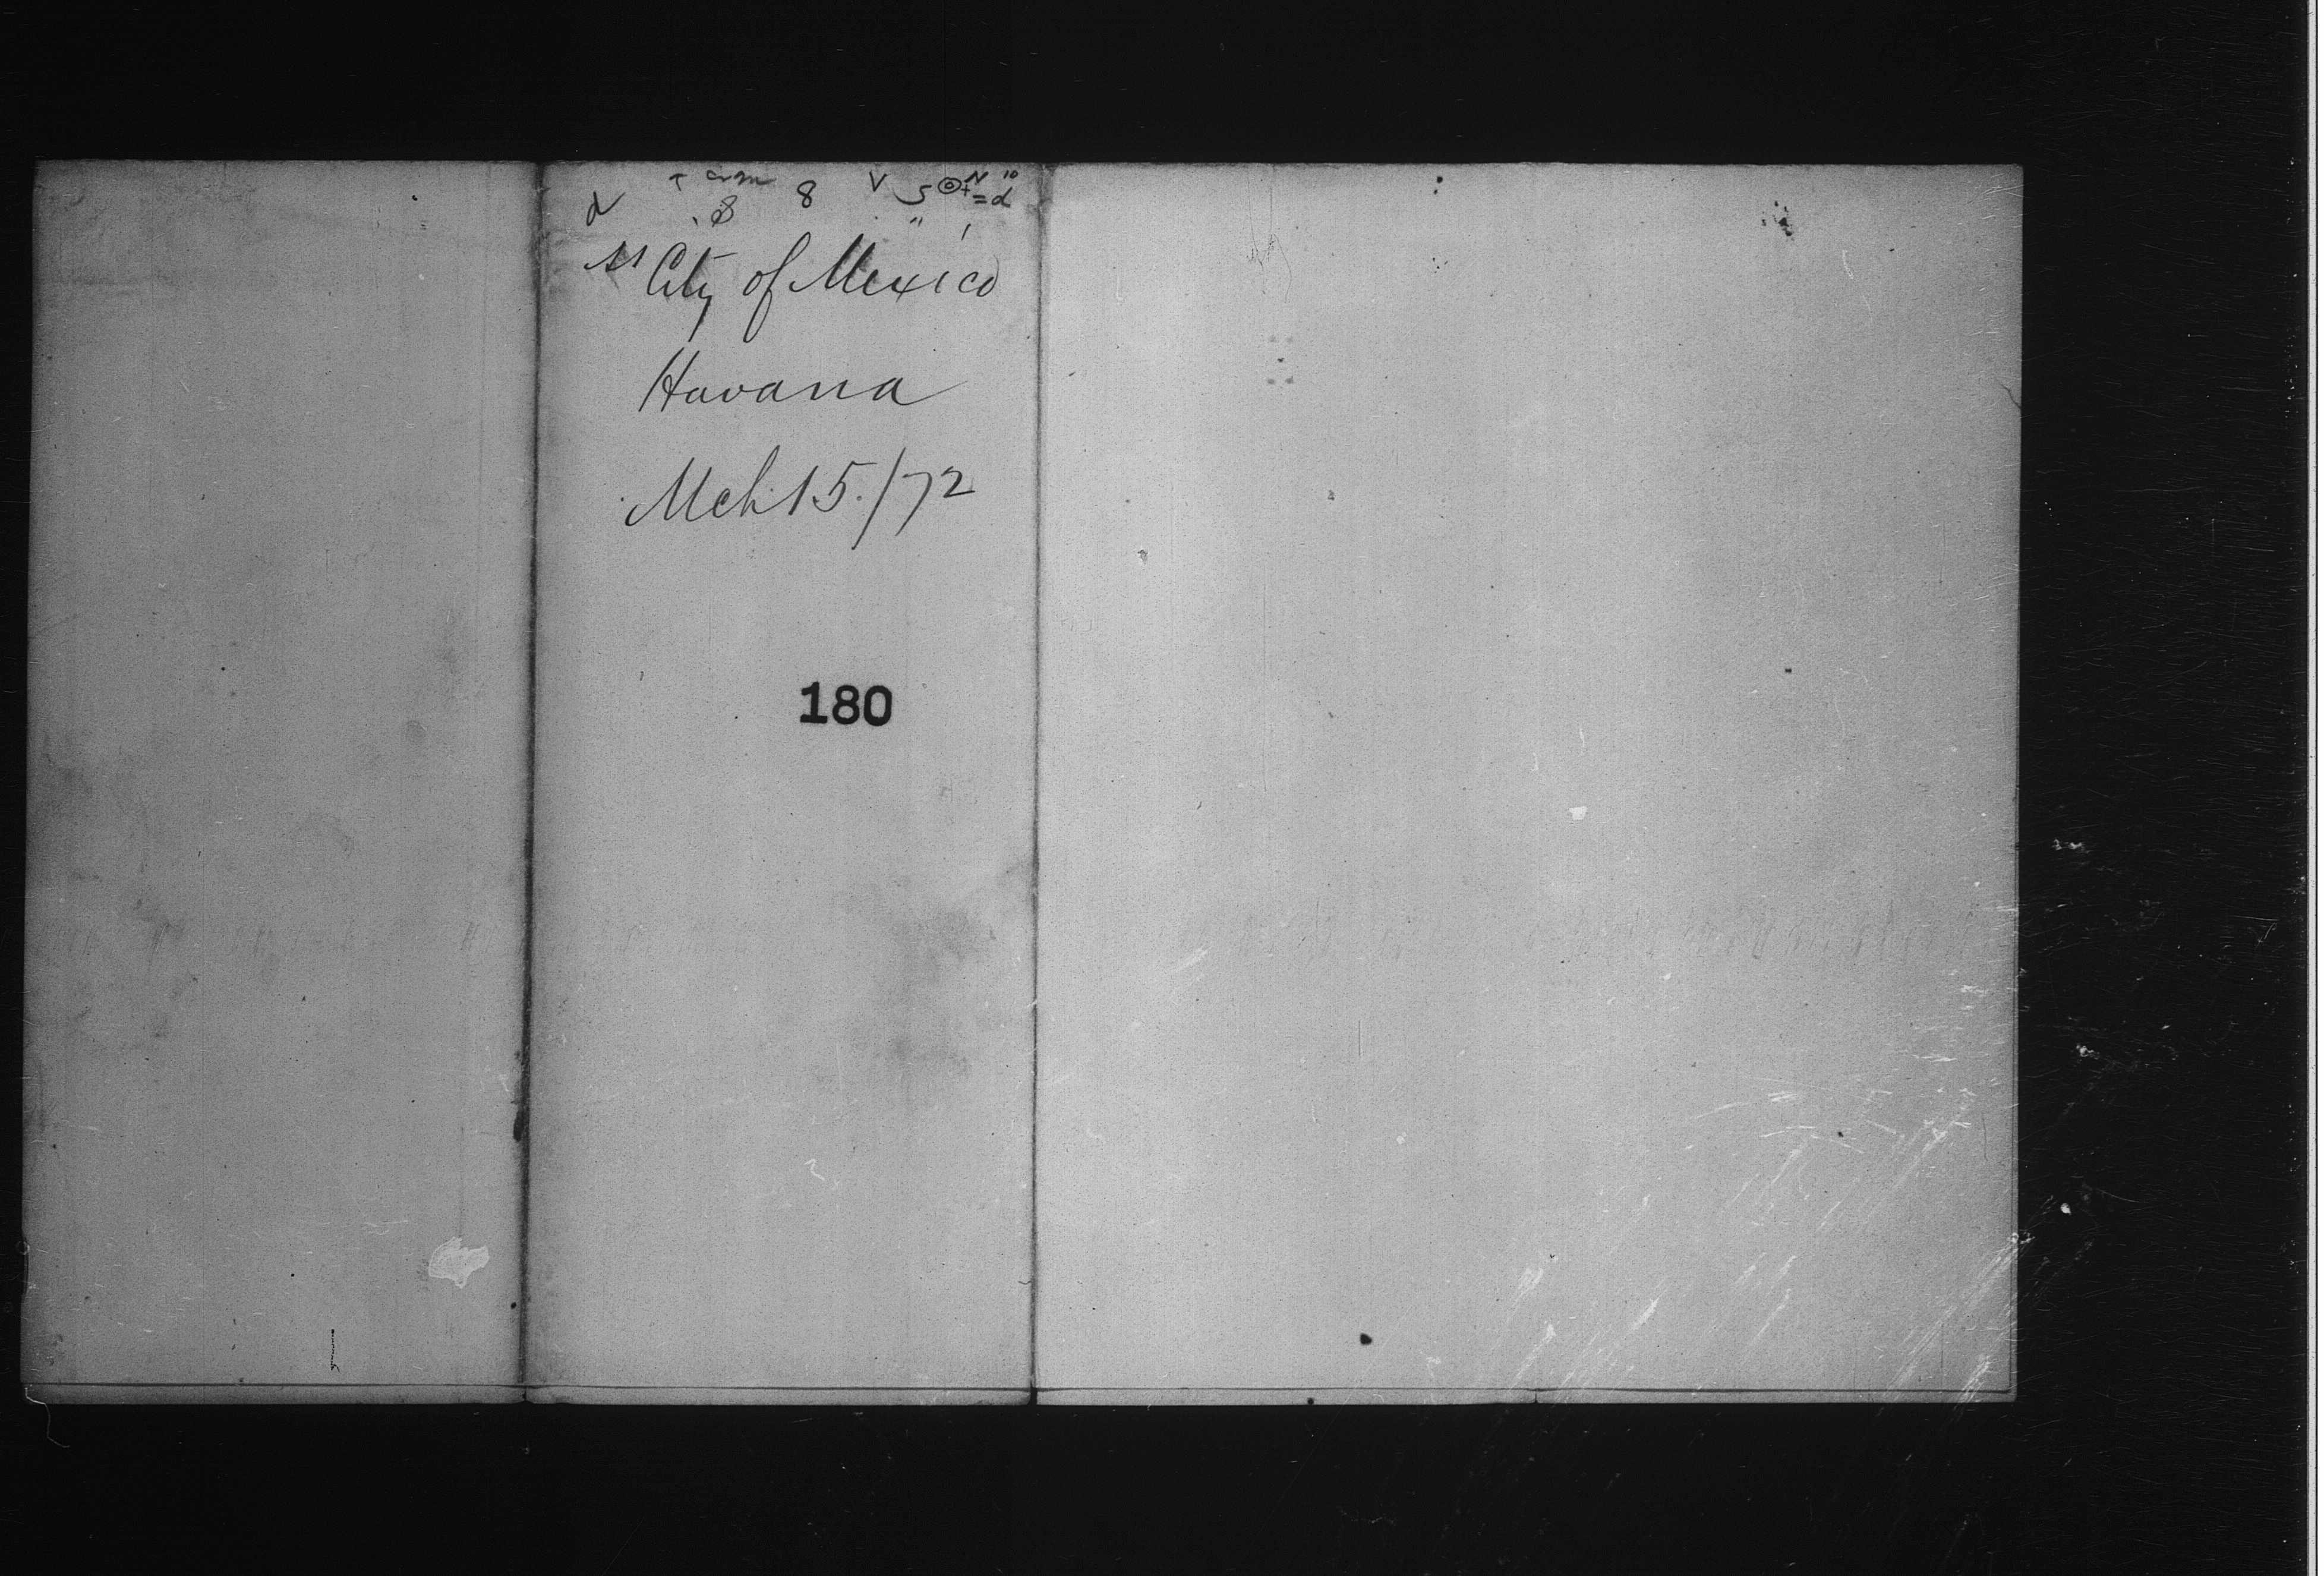 SS City of Mexico
Havana
Mch 15./72
180